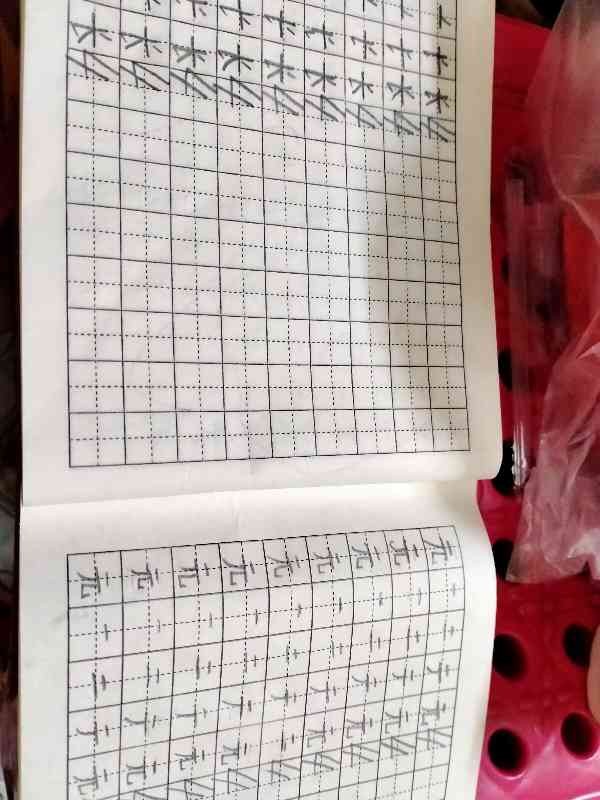 长 长 长 长 长 长 长 长 长
元 元 元 元 元 元 元 元 元
一 一 一 一 一 一 一 一 一
二 二 二 二 二 二 二 二 二
元 元 元 元 元 元 元 元